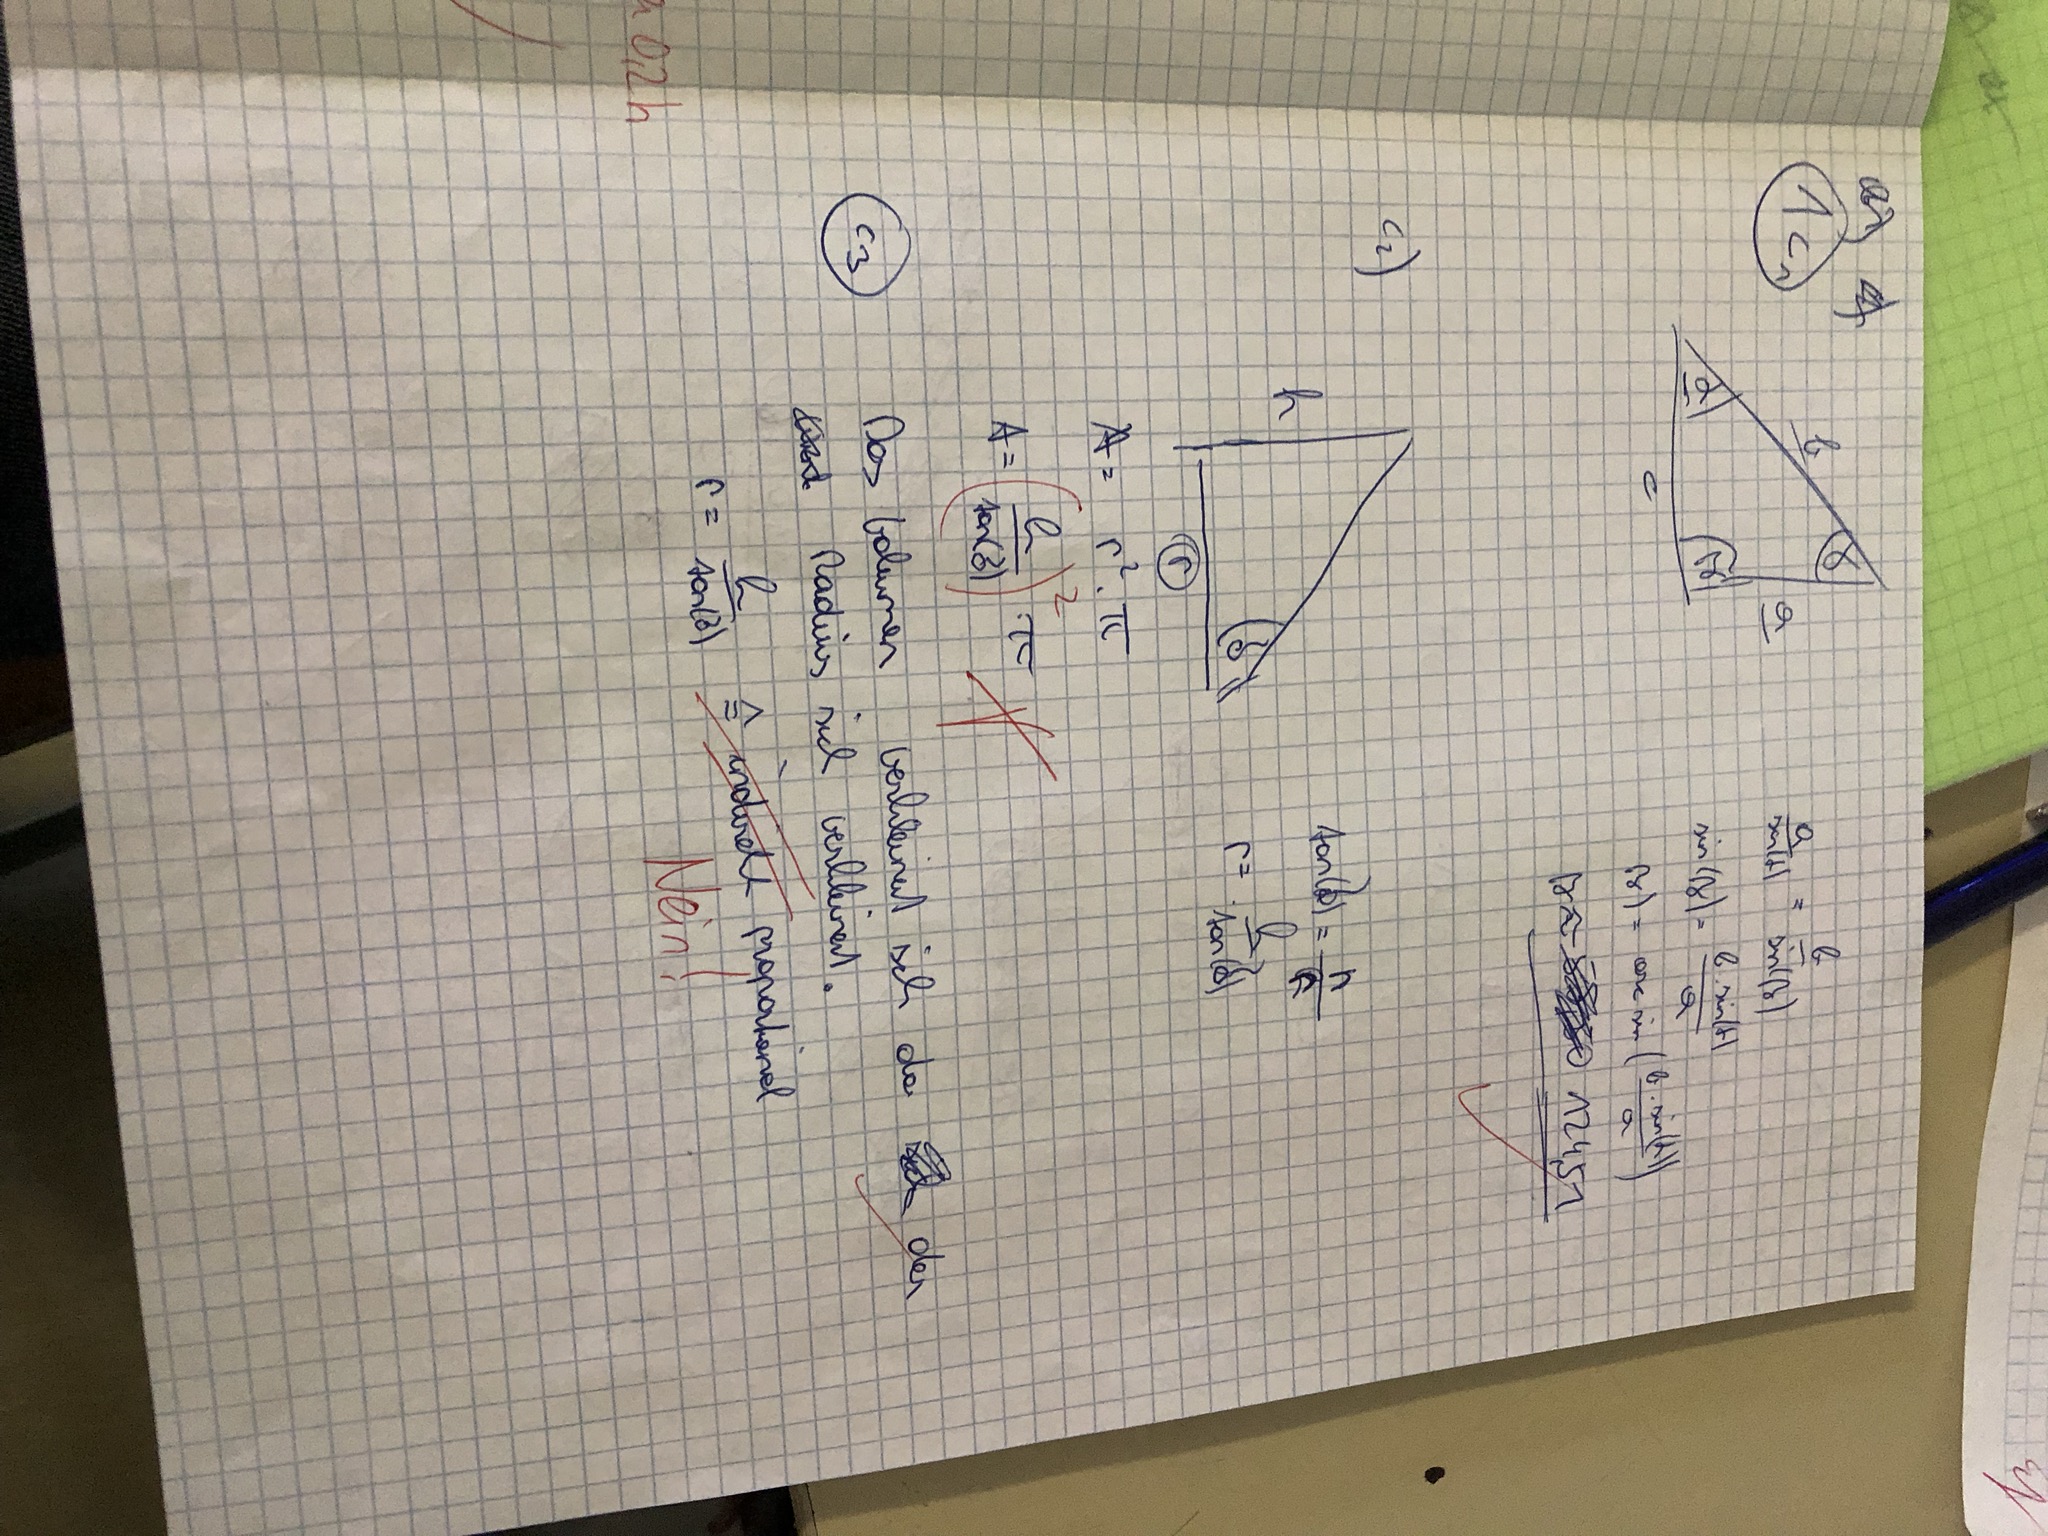 1c1
α b γ
c β a
a/sin(α) = b/sin(β)
sin(β) = b·sin(α)/a
β = arc sin (b·sin(α)/a)
124,51
c2)
h
r
β
tan(β) = h/r
r = h/tan(β)
A = r² · π
A = (h/tan(β))² · π
c3
Das Volumen verkleinert sich da der
Radius sich verkleinert.
r = h/tan(β) ≙ indirekt proportional
Nein!
0,2h